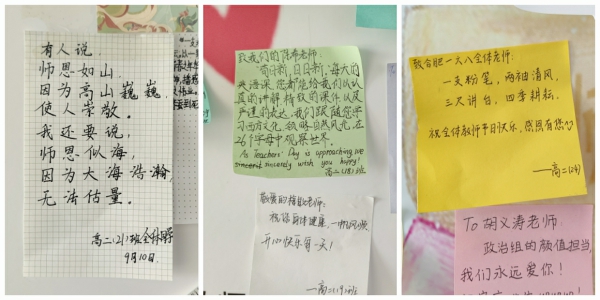 有人说，
师恩如山，
因为高山巍巍，
使人崇敬。
我还要说，
师恩似海，
因为大海浩瀚，
无法估量。
高二(21)班全体同学
9月10日.
致我们的陈涛老师:
苟日新,日日新,每天的
英语课,您都能给我们以认
真的讲解,精致的课件以及
严谨的表达,我们跟随您学
习西方文化,领略自然风光,在
26个字母中观察世界.
As Teachers' Day is approaching,we
sincerely wish you happy!
高二(18)班
老师:
祝您身体健康,一帆风顺
开心快乐每一天!
——高二(19)班
致合肥一六八全体老师:
一支粉笔,两袖清风,
三尺讲台,四季耕耘.
祝全体教师节日快乐,感恩有您
——高二(24)
To 胡义涛老师
政治组的颜值担当,
我们永远爱你!